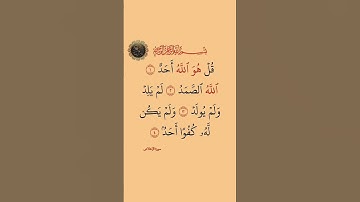 بسم الله الرحمن الرحيم
قُلْ هُوَ ٱللَّهُ أَحَدٌ ١
ٱللَّهُ ٱلصَّمَدُ ٢ لَمْ يَلِدْ
وَلَمْ يُولَدْ ٣ وَلَمْ يَكُن
لَّهُۥ كُفُوًا أَحَدٌۢ ٤
سورة الإخلاص